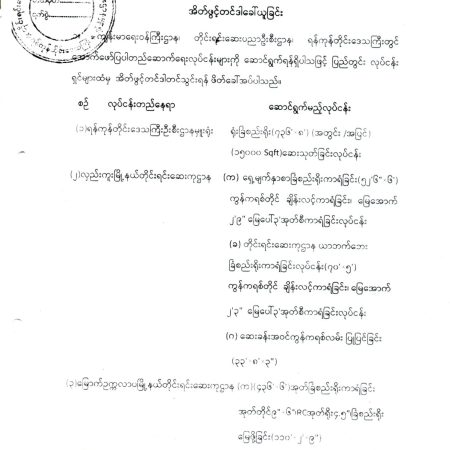 အိတ်ဖွင့်တင်ဒါခေါ်ယူခြင်း
ကျန်းမာရေးဝန်ကြီးဌာန၊ တိုင်းရင်းဆေးပညာဦးစီးဌာန၊ ရန်ကုန်တိုင်းဒေသကြီးတွင်
အောက်ဖော်ပြပါတည်ဆောက်ရေးလုပ်ငန်းများကို ဆောင်ရွက်ရန်ရှိပါသဖြင့် ပြည်တွင်း လုပ်ငန်း
ရှင်များထံမှ အိတ်ဖွင့်တင်ဒါတင်သွင်းရန် ဖိတ်ခေါ်အပ်ပါသည်။
စဉ် လုပ်ငန်းတည်နေရာ ဆောင်ရွက်မည့်လုပ်ငန်း
(၁)ရန်ကုန်တိုင်းဒေသကြီးဦးစီးဌာနမှူးရုံး ရုံးခြံစည်းရိုး(၇၃၆'-၈') (အတွင်း/အပြင်)
(၁၅၀၀၀ Sqft)ဆေးသုတ်ခြင်းလုပ်ငန်း
(၂)လှည်းကူးမြို့နယ်တိုင်းရင်းဆေးကုဌာန (က) ရှေ့မျက်နှာစာခြံစည်းရိုးကာရံခြင်း(၅၂'၆"-၆')
ကွန်ကရစ်တိုင် ချိန်းလင့်ကာရံခြင်း၊ မြေအောက်
၂'၉" မြေပေါ်၃'အုတ်စီကာရံခြင်းလုပ်ငန်း
(ခ) တိုင်းရင်းဆေးကုဌာန ယာဘက်ဘေး
ခြံစည်းရိုးကာရံခြင်းလုပ်ငန်း(၇၀'-၅')
ကွန်ကရစ်တိုင် ချိန်းလင့်ကာရံခြင်း၊ မြေအောက်
၂'၃" မြေပေါ်၃'အုတ်စီကာရံခြင်းလုပ်ငန်း
(ဂ) ဆေးခန်းအဝင်ကွန်ကရစ်လမ်း ပြုပြင်ခြင်း
(၃၃'-၈'-၃")
(၃)မြောက်ဥက္ကလာပမြို့နယ်တိုင်းရင်းဆေးကုဌာန (က)(၄၃၆'-၆')အုတ်ခြံစည်းရိုးကာရံခြင်း
အုတ်တိုင်၉"-၆'၊RCအုတ်ရိုး၄.၅"ခြံစည်းရိုး
မြေဖို့ခြင်း(၁၁၀'-၂'-၉")